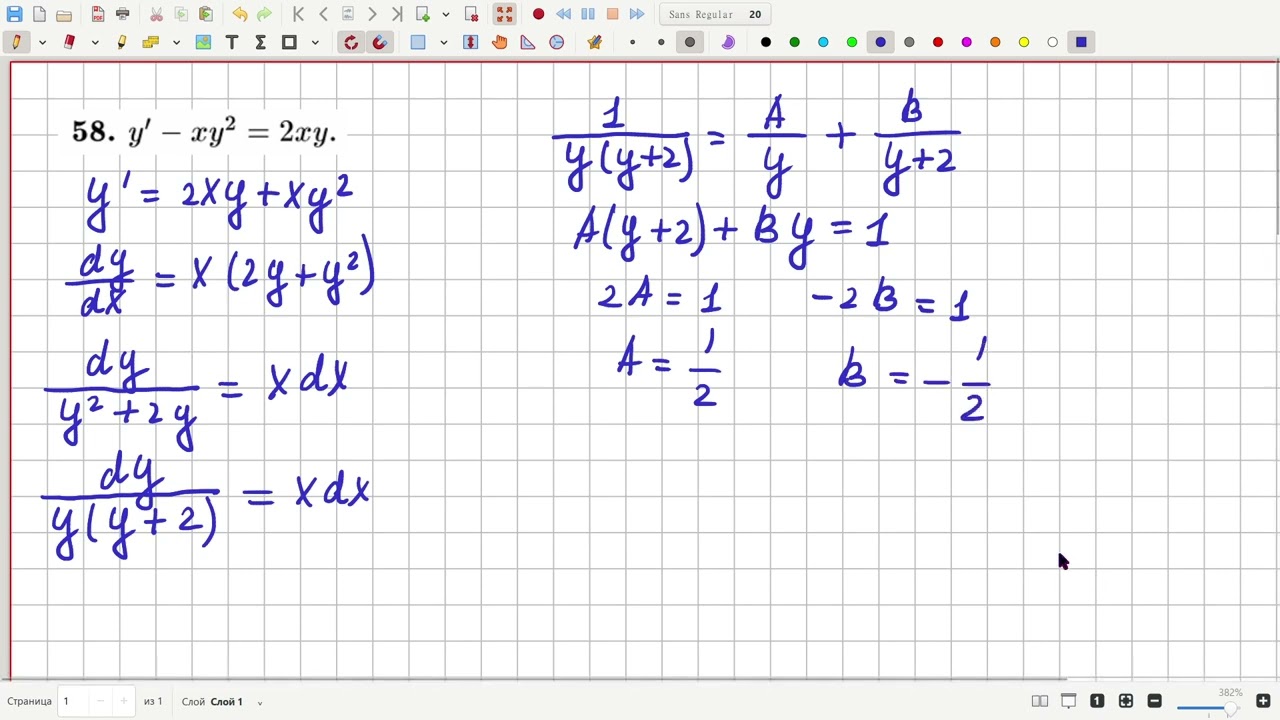 Sans Regular 20
58. y′ − xy² = 2xy.
y' = 2xy + xy²
dy/dx = x(2y + y²)
dy/(y² + 2y) = x dx
dy/(y(y + 2)) = x dx
1/(y(y+2)) = A/y + B/(y+2)
A(y+2) + By = 1
2A = 1 -2B = 1
A = 1/2 B = -1/2
Страница 1 из 1 Слой Слой 1 382%